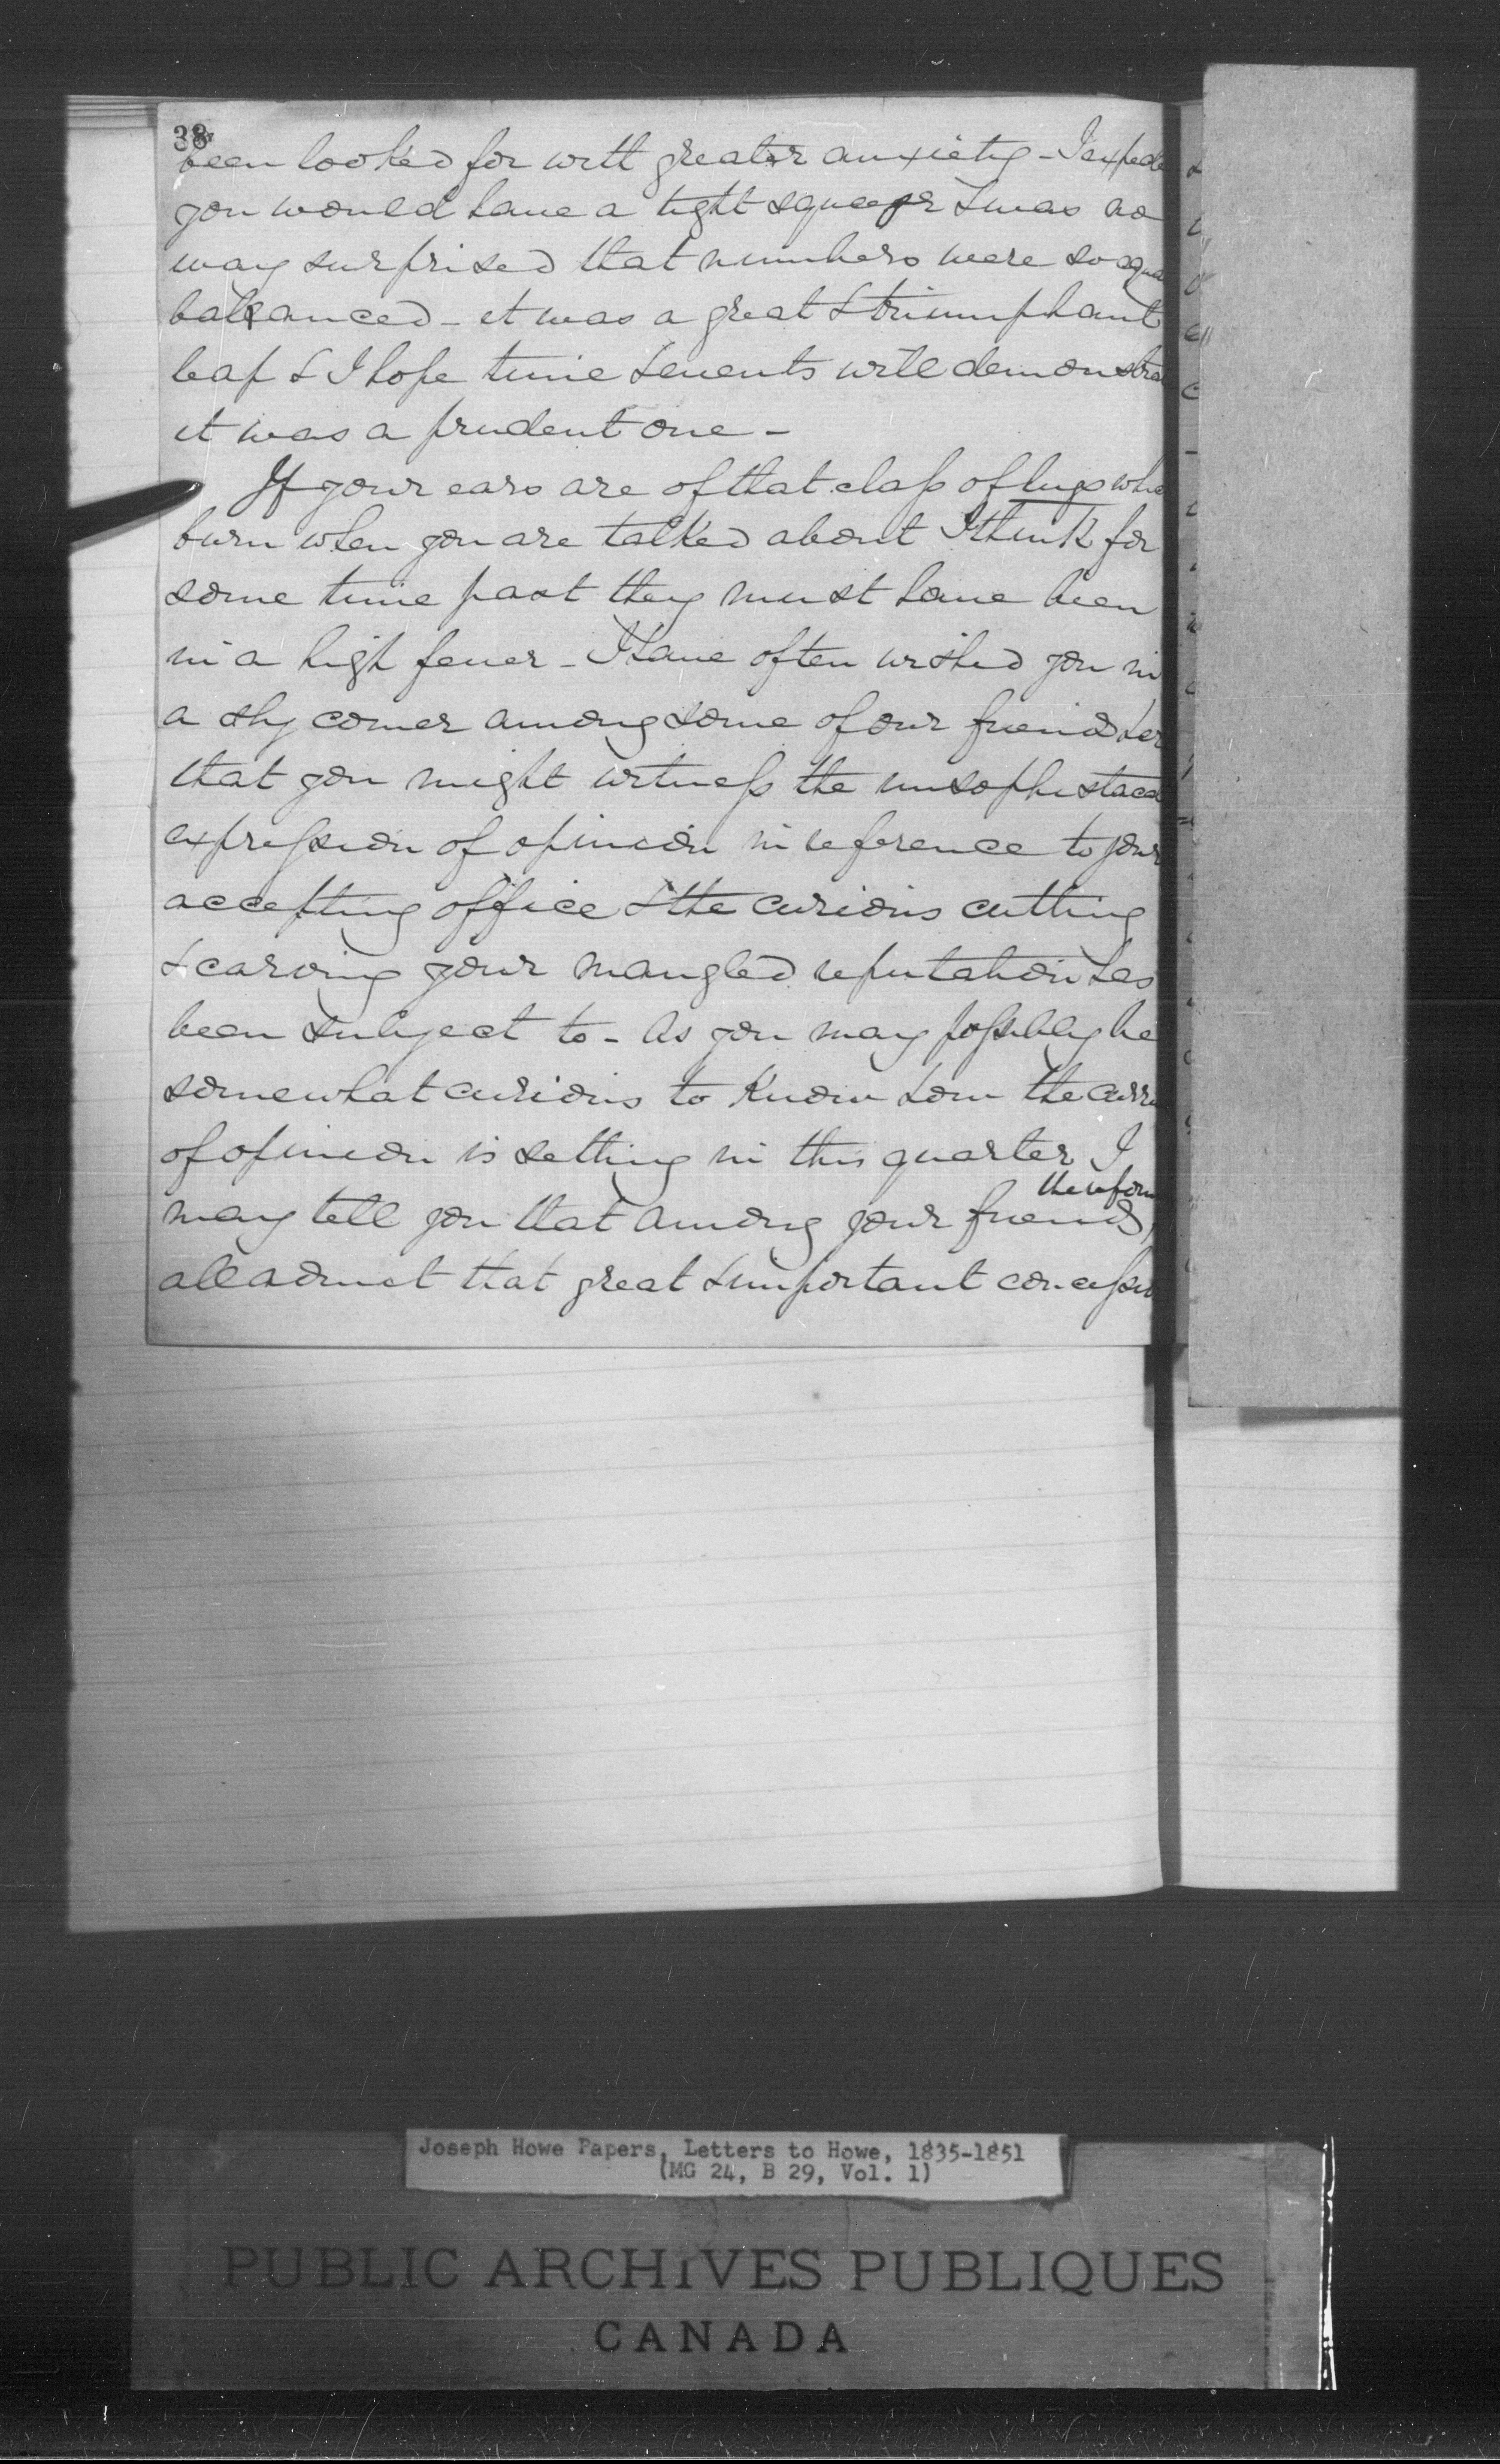 38
been looked for with greater anxiety - I expecte
you would have a tight squeeze & was no
way surprised that numbers were so equa
balanced - it was a great & triumphant
leap & I hope time & events will demonstra
it was a prudent one -
If your ears are of that class of lugs whi
burn when you are talked about I think for
some time past they must have been
in a high fever - I have often wished you in
a shy corner among some of our friends her
that you might witness the unsophisticat
expression of opinion in reference to your
accepting office & the curious cutting
& carving your mangled reputation has
been subject to - As you may possibly be
somewhat curious to know how the curre
of opinion is setting in this quarter I
therefore
may tell you that among your friends,
all admit that great & important concessio
Joseph Howe Papers, Letters to Howe, 1835-1851
(MG 24, B 29, Vol. 1)
PUBLIC ARCHIVES PUBLIQUES
CANADA